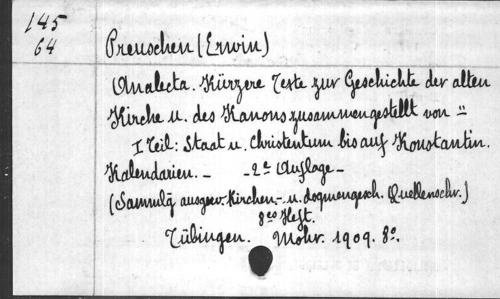 145
64
Preuschen (Erwin)
Analecta. Kürzere Texte zur Geschichte der alten
Kirche u. des Kanons zusammengestellt von =
I Teil: Staat u. Christentum bis auf Konstantin.
Kalendarien. – -2e Auflage-
(Sammlg ausgew. Kirchen- u. dogmengesch. Quellenschr.)
8es Heft.
Tübingen. Mohr. 1909. 8o.